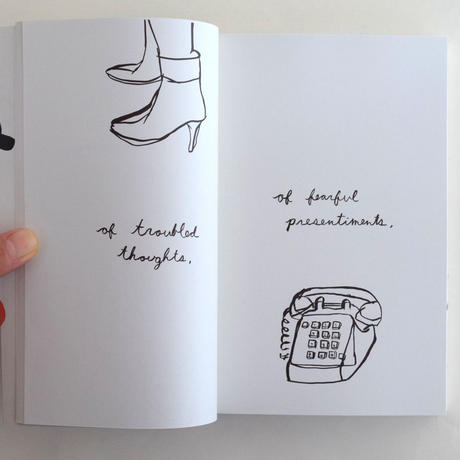 of troubled
thoughts,
of fearful
presentiments,